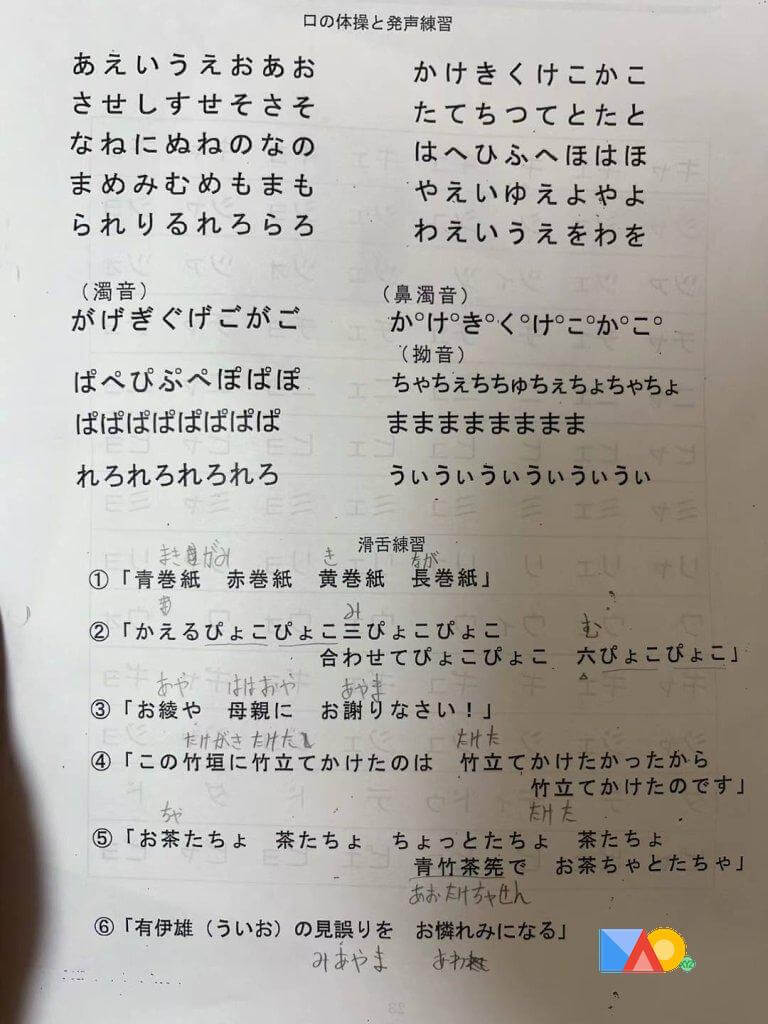 口の体操と発声練習
あえいうえおあお
かけきくけこかこ
させしすせそさそ
たてちつてとたと
なねにぬねのなの
はへひふへほはほ
まめみむめもまも
やえいゆえよやよ
られりるれろらろ
わえいうえをわを
（濁音）
がげぎぐげごがご
（鼻濁音）
か°け°き°く°け°こ°か°こ°
（拗音）
ぱぺぴぷぺぽぱぽ
ちゃちぇちちゅちぇちょちゃちょ
ぱぱぱぱぱぱぱぱ
まままままままま
れろれろれろれろ
うぃうぃうぃうぃうぃうぃ
滑舌練習
き なが
①「青巻紙 赤巻紙 黄巻紙 長巻紙」
あ み む
②「かえるぴょこぴょこ三ぴょこぴょこ
合わせてぴょこぴょこ 六ぴょこぴょこ」
あや ははおや あやま
③「お綾や 母親に お謝りなさい！」
たけがき たけた たけた
④「この竹垣に竹立てかけたのは 竹立てかけたかったから
竹立てかけたのです」
ちゃ たけた
⑤「お茶たちょ 茶たちょ ちょっとたちょ 茶たちょ
青竹茶筅で お茶ちゃとたちゃ」
あおたけちゃせん
⑥「有伊雄（ういお）の見誤りを お憐れみになる」
みあやま あわれ